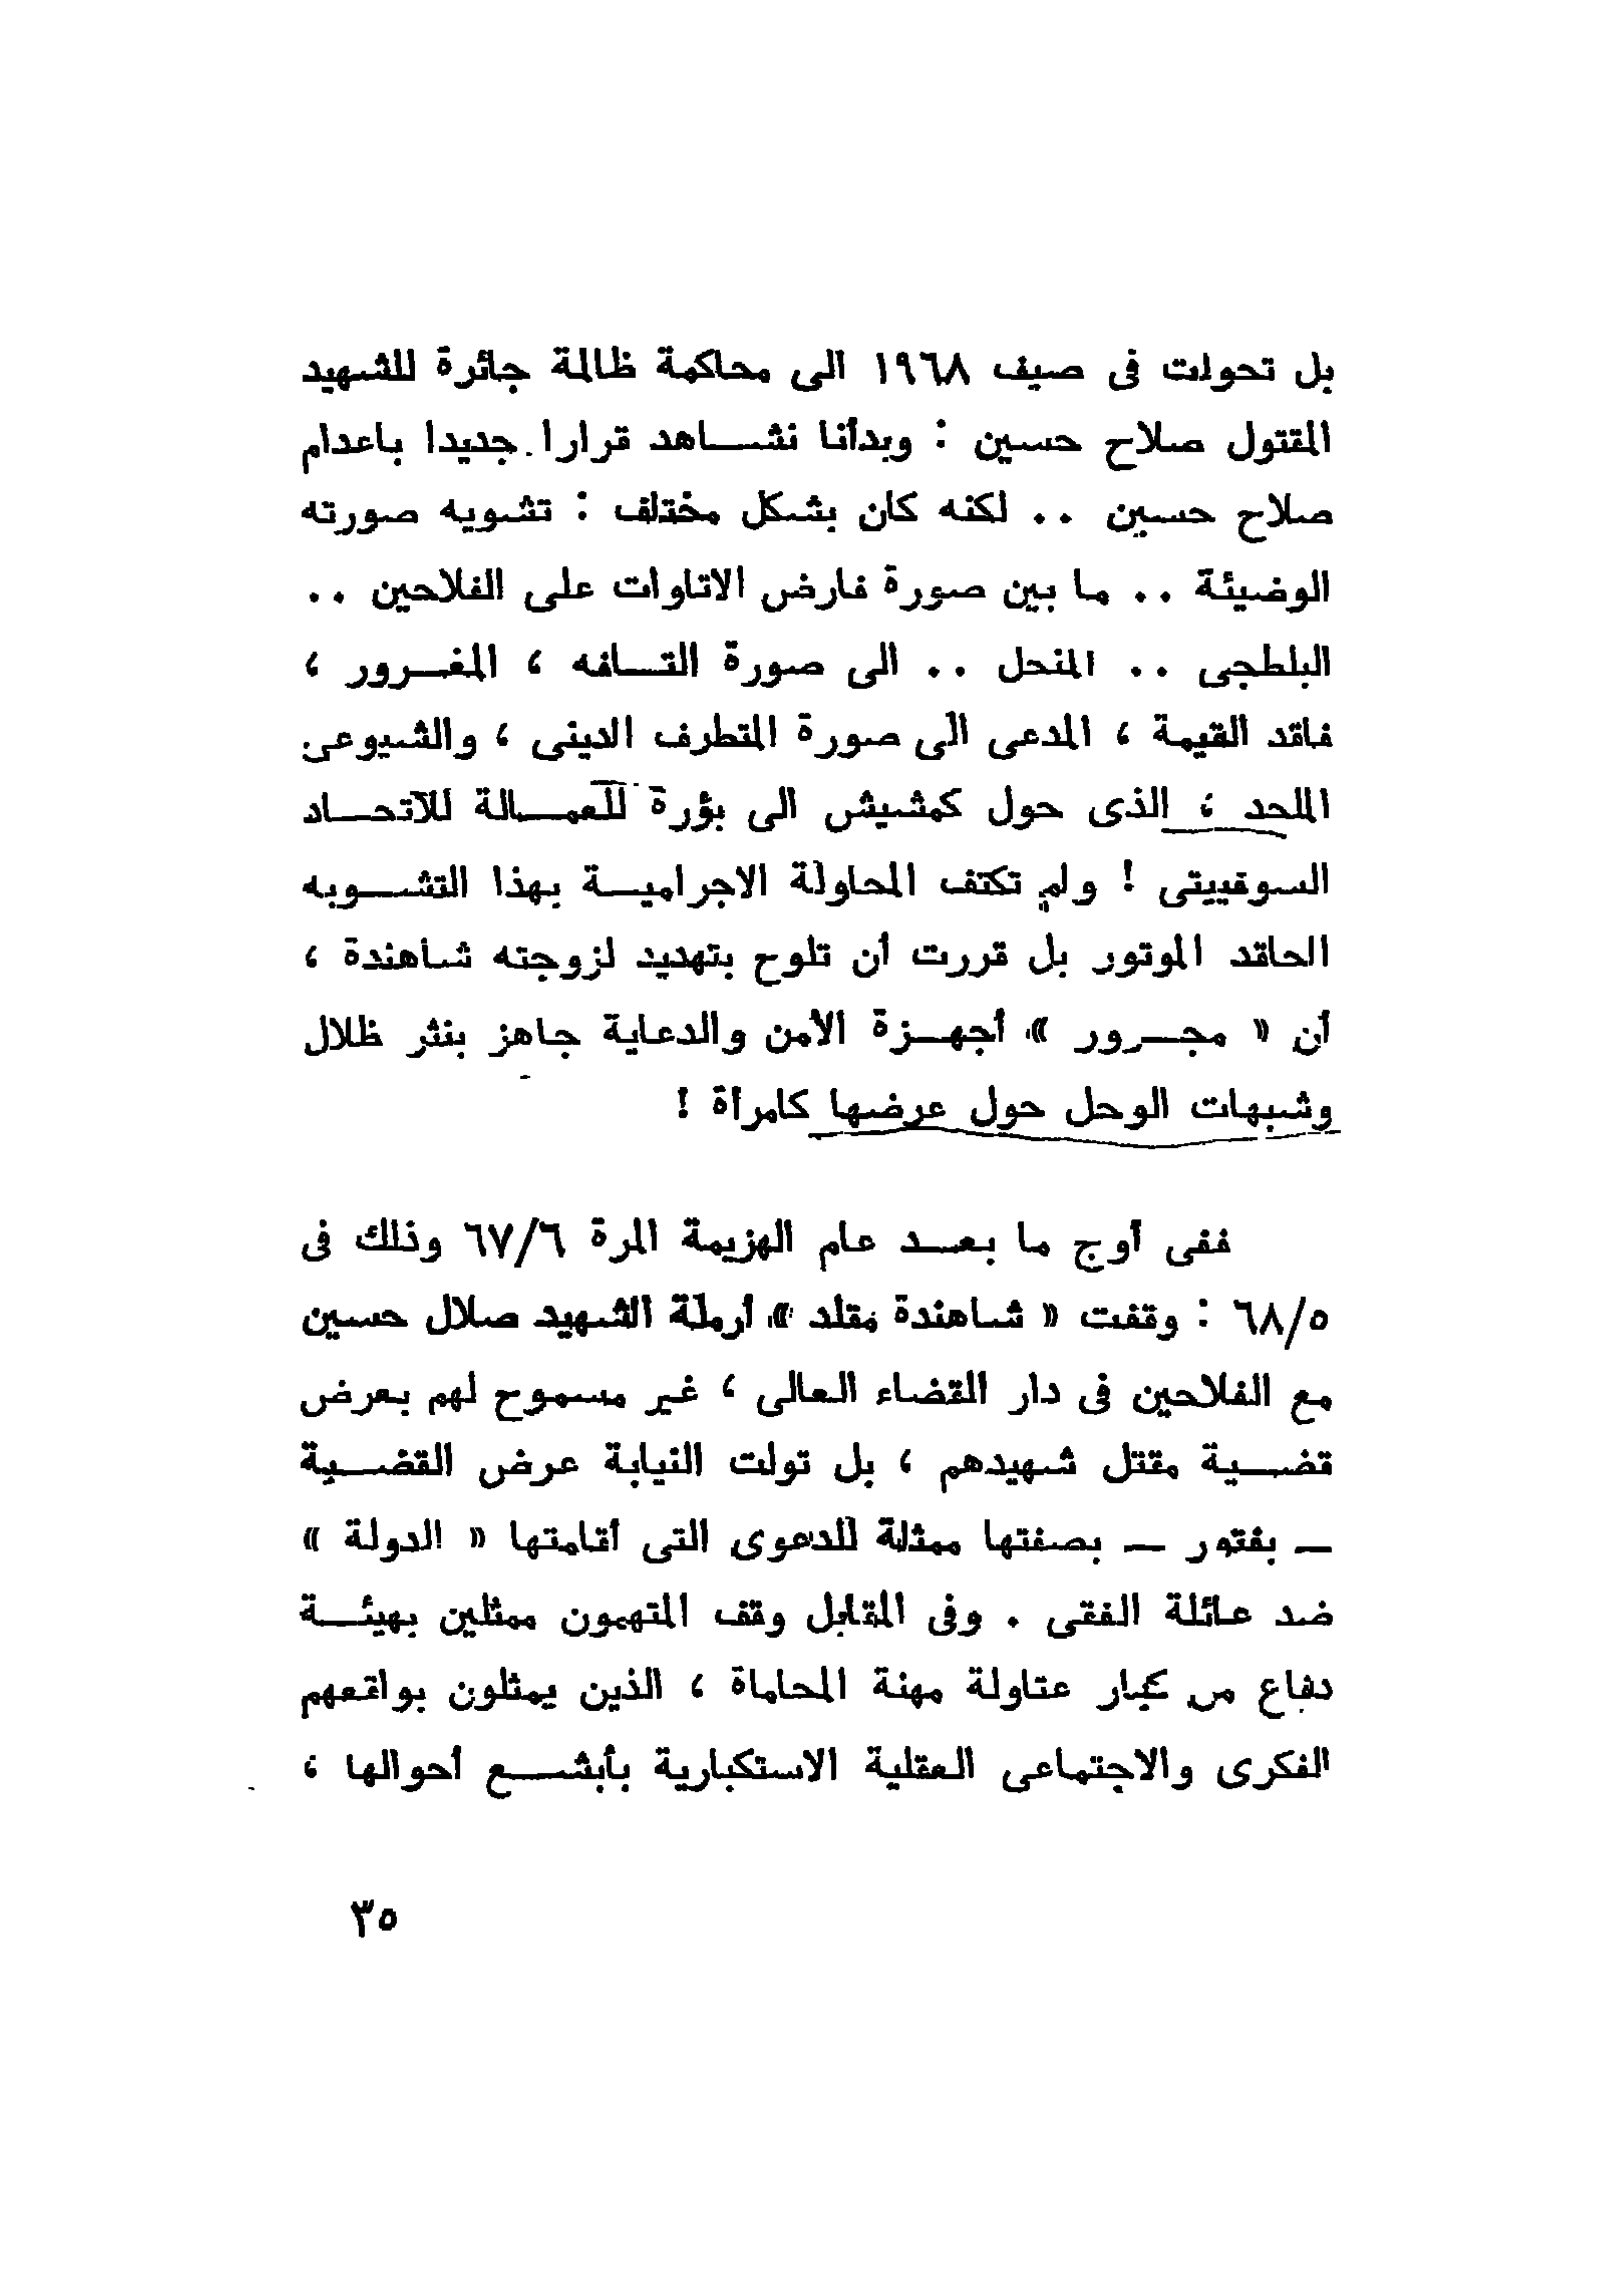 بل تحولت فى صيف ١٩٦٨ الى محاكمة ظالمة جائرة للشهيد
المقتول صلاح حسين : وبدأنا نشاهد قرارا جديدا باعدام
صلاح حسين .. لكنه كان بشكل مختلف : تشويه صورته
الوضيئة .. ما بين صورة فارض الاتاوات على الفلاحين ..
البلطجى .. المنحل .. الى صورة التافه ، المغرور ،
فاقد القيمة ، المدعى الى صورة المتطرف الدينى ، والشيوعى
الملحد ، الذى حول كمشيش الى بؤرة للعمالة للآتحاد
السوفييتى ! ولم تكتف المحاولة الاجرامية بهذا التشويه
الحاقد الموتور بل قررت أن تلوح بتهديد لزوجته شاهندة ،
أن « مجرور » أجهزة الأمن والدعاية جاهز بنثر ظلال
وشبهات الوحل حول عرضها كامرأة !
ففى أوج ما بعد عام الهزيمة المرة ٦٧/٦ وذلك فى
٦٨/٥ : وقفت « شاهندة مقلد » أرملة الشهيد صلال حسين
مع الفلاحين فى دار القضاء العالى ، غير مسموح لهم بعرض
قضية مقتل شهيدهم ، بل تولت النيابة عرض القضية
— بفتور — بصفتها ممثلة للدعوى التى أقامتها « الدولة »
ضد عائلة الفقى . وفى المقابل وقف المتهمون ممثلين بهيئة
دفاع من كبار عتاولة مهنة المحاماة ، الذين يمثلون بواقعهم
الفكرى والاجتماعى العقلية الاستكبارية بأبشع أحوالها ،
٣٥